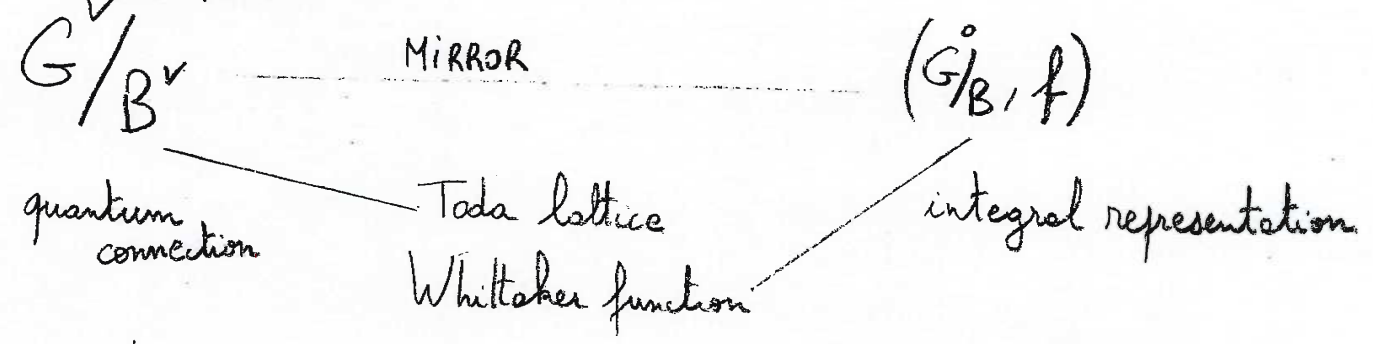 G^∨/B^∨ MiRROR (G̊/B, f)
quantum connection
Toda lattice
Whittaker function
integral representation